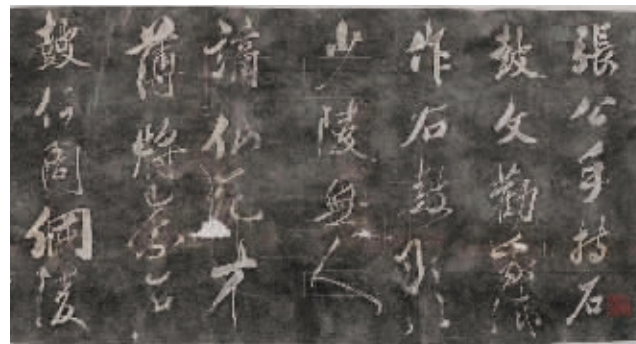 張公手持石
鼓文勸我試
作石鼓歌
少陵無人
謫仙死才
薄將奈石
鼓何周綱陵